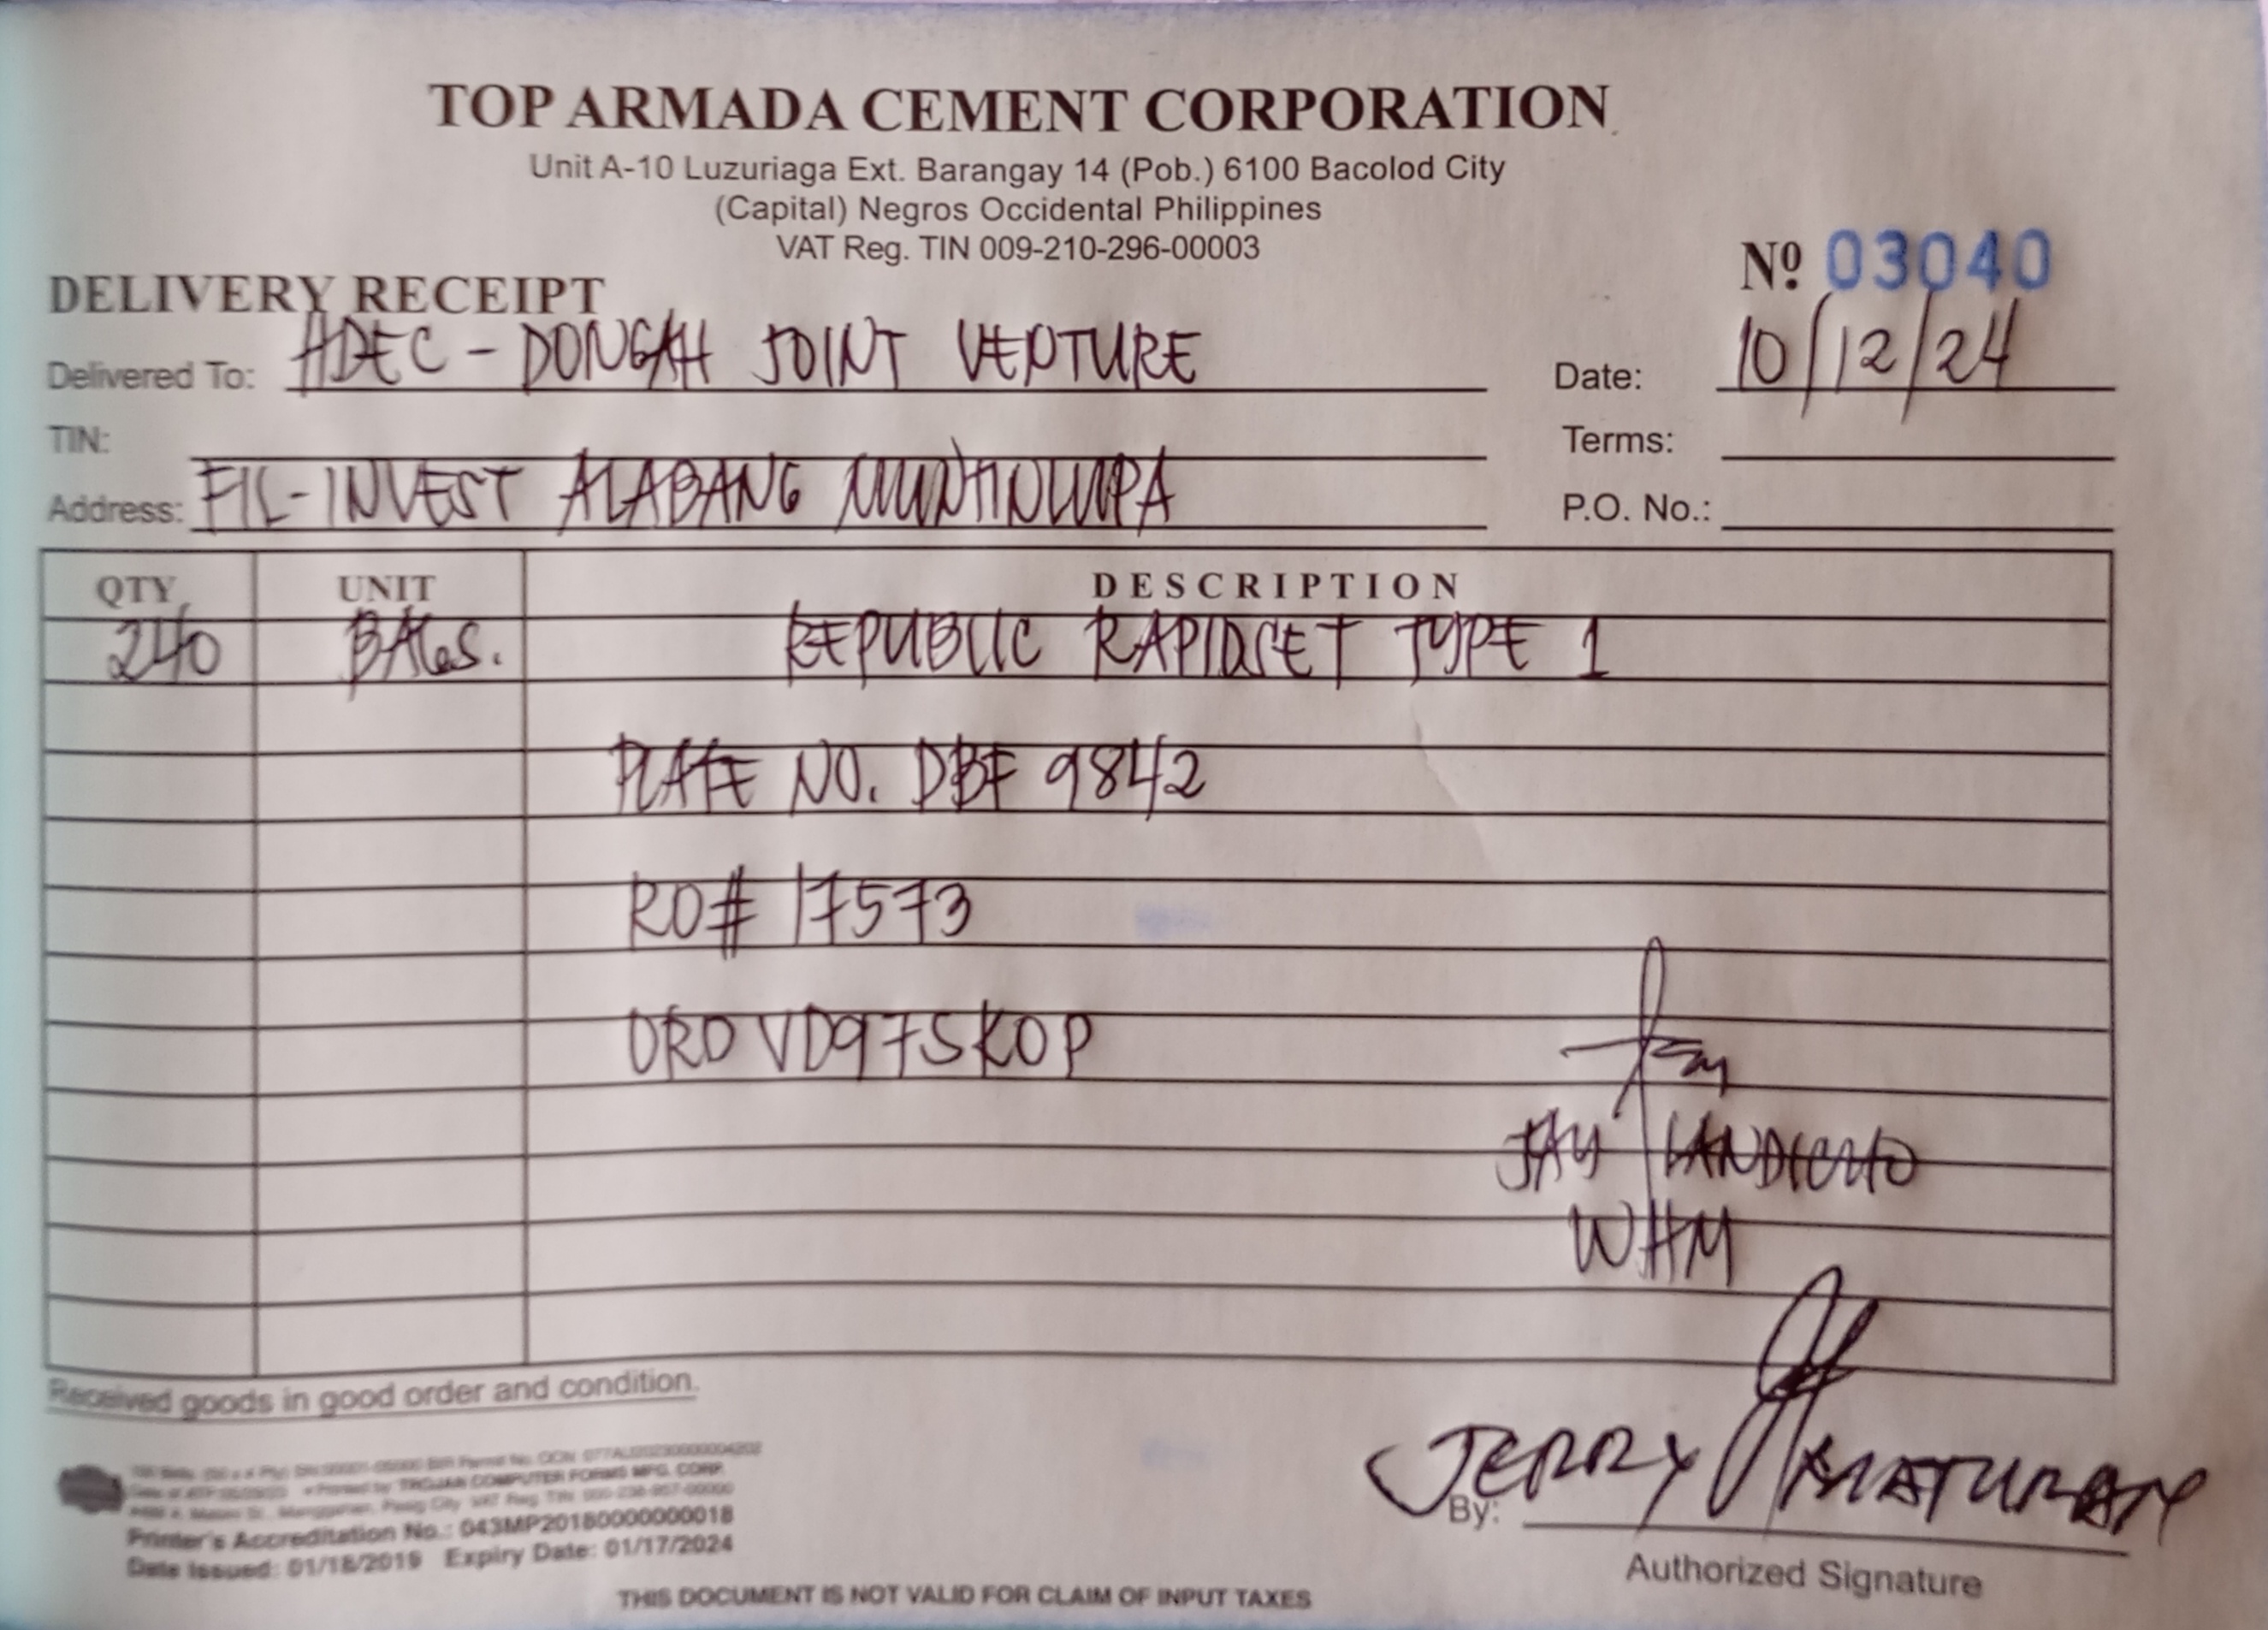 TOP ARMADA CEMENT CORPORATION
Unit A-10 Luzuriaga Ext. Barangay 14 (Pob.) 6100 Bacolod City
(Capital) Negros Occidental Philippines
VAT Reg. TIN 009-210-296-00003
Nº 03040
DELIVERY RECEIPT
Delivered To: HDEC - DONGAH JOINT VENTURE Date: 10/12/24
TIN: Terms:
Address: FIL-INVEST ALABANG MUNTINLUPA P.O. No.:
QTY UNIT DESCRIPTION
240 BAGS. REPUBLIC RAPIDSET TYPE 1
PLATE NO. DBF 9842
RO# 17573
ORO VD97SKOP
JAY
WHM
Received goods in good order and condition.
JERRY
By:
Authorized Signature
TROJAN COMPUTER FORMS MFG. CORP.
Printer's Accreditation No.: 043MP20180000000018
Date Issued: 01/18/2019 Expiry Date: 01/17/2024
THIS DOCUMENT IS NOT VALID FOR CLAIM OF INPUT TAXES